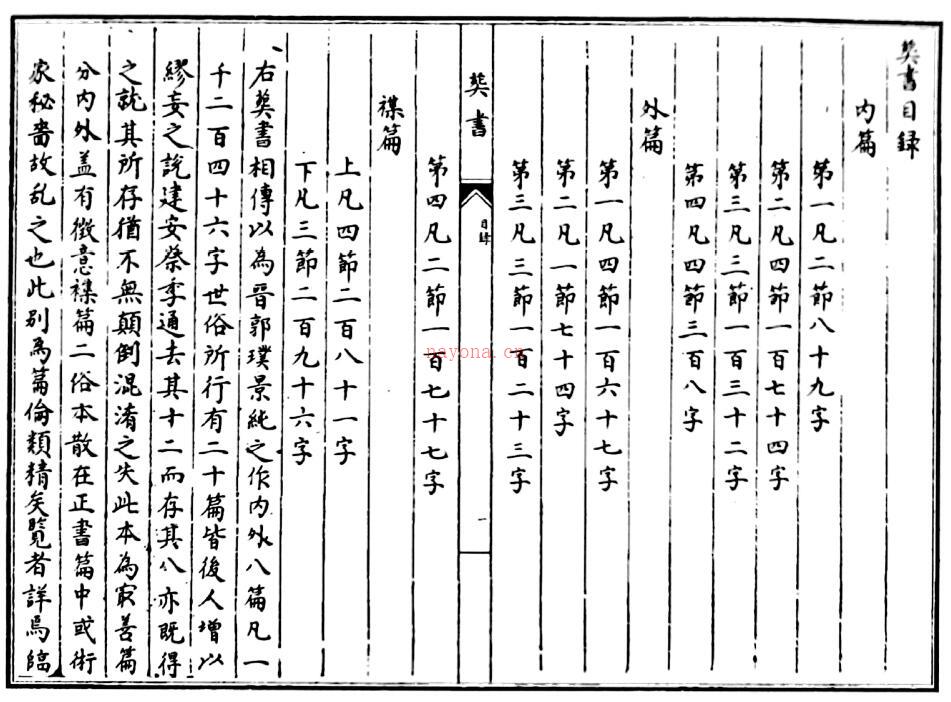 葬書目録
内篇
第一凡二節八十九字
第二凡四節一百七十四字
第三凡三節一百三十二字
第四凡四節三百八字
外篇
第一凡四節一百六十七字
第二凡一節七十四字
第三凡三節一百二十三字
葬書
目録
一
第四凡二節一百七十七字
襍篇
上凡四節二百八十一字
下凡三節二百九十六字
右葬書相傳以為晋郭璞景純之作内外八篇凡一
千二百四十六字世俗所行有二十篇皆後人增以
繆妄之說建安蔡季通去其十二而存其八亦既得
之就其所存猶不無顛倒混淆之失此本為㝡善篇
分内外盖有微意襍篇二俗本散在正書篇中或術
家秘嗇故乱之也此别為篇倫類精矣覽者詳焉臨
nayona.cn